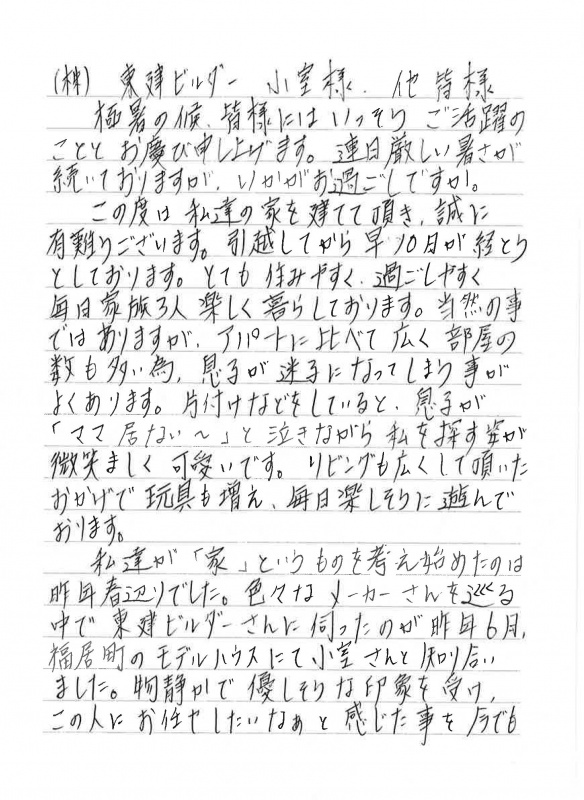 (株) 東建ビルダー 小室様、他皆様
極暑の候、皆様にはいっそうご活躍の
こととお慶び申し上げます。連日厳しい暑さが
続いておりますが、いかがお過ごしですか。
この度は私達の家を建てて頂き、誠に
有難うございます。引越してから早10日が経とう
としております。とても住みやすく、過ごしやすく
毎日家族3人楽しく暮らしております。当然の事
ではありますが、アパートに比べて広く部屋の
数も多い為、息子が迷子になってしまう事が
よくあります。片付けなどをしていると、息子が
「ママ居ない～」と泣きながら私を探す姿が
微笑ましく可愛いです。リビングも広くして頂いた
おかげで玩具も増え、毎日楽しそうに遊んで
おります。
私達が「家」というものを考え始めたのは
昨年春辺りでした。色々なメーカーさんを巡る
中で東建ビルダーさんに伺ったのが昨年6月、
福居町のモデルハウスにて小室さんと知り合い
ました。物静かで優しそうな印象を受け、
この人にお任せしたいなぁと感じた事を今でも